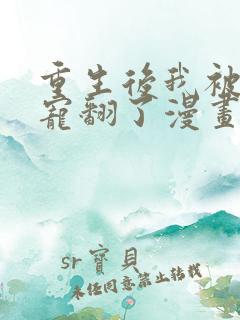 重生後我被
寵翻了漫畫
sr寶貝
未經同意禁止轉載